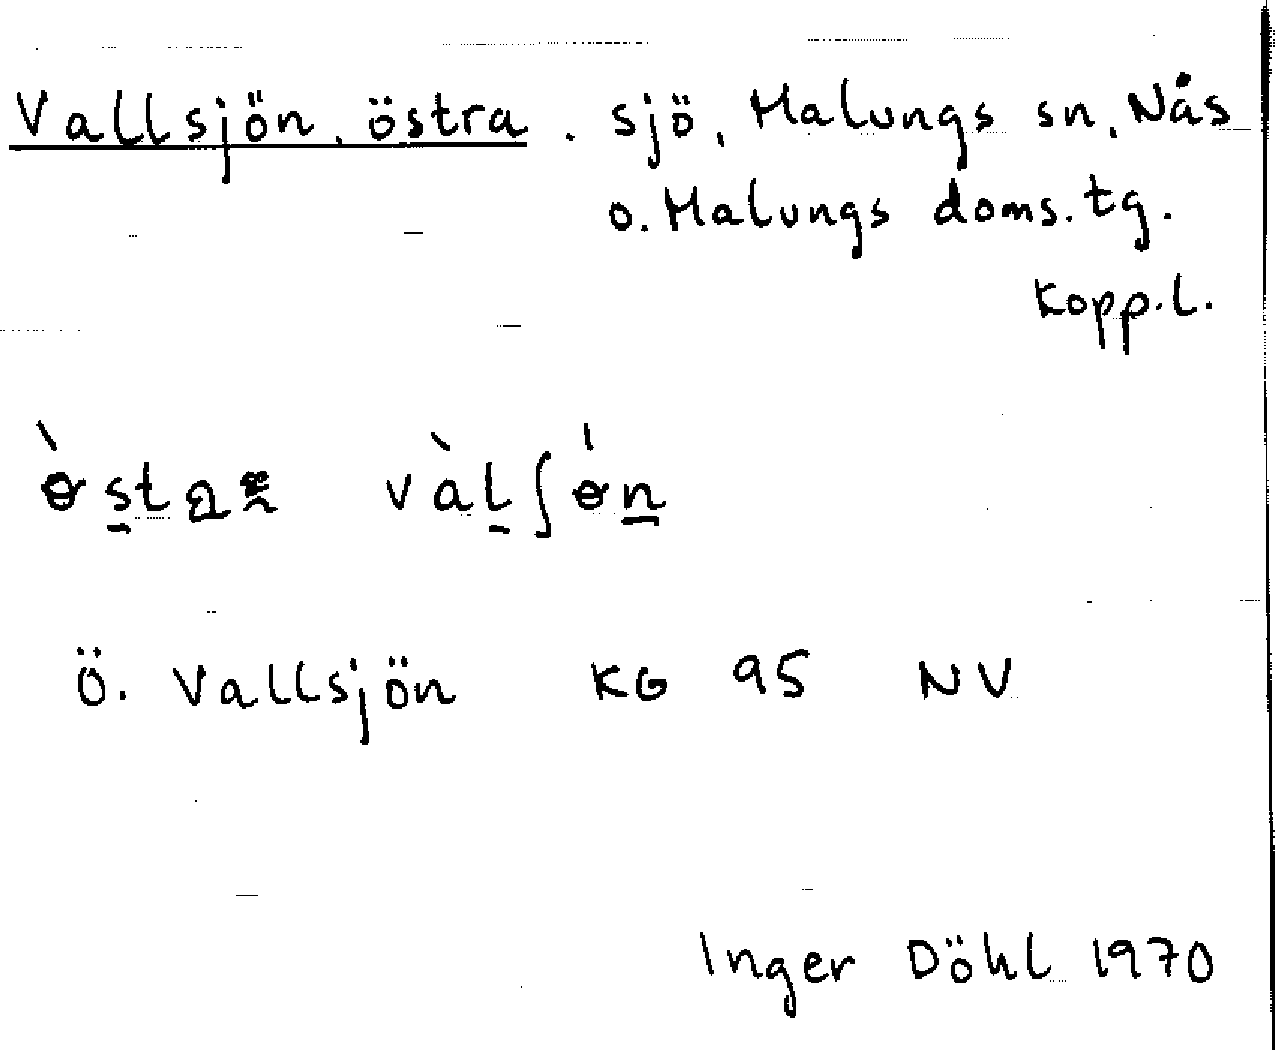 Vallsjön, östra. sjö, Malungs sn, Nås
o. Malungs doms. tg.
Kopp. l.
Ö. Vallsjön KG 95 NV
Inger Döhl 1970